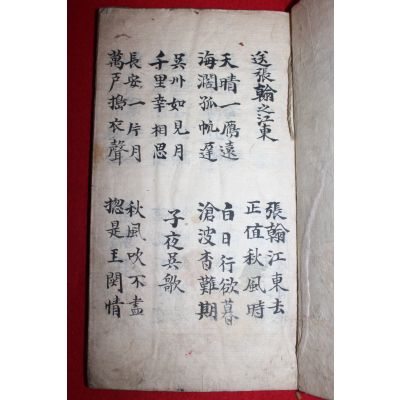 送張翰之江東
張翰江東去
正值秋風時
天晴一鴈遠
海濶孤帆遲
白日行欲暮
滄波杳難期
吳州如見月
千里幸相思
子夜吳歌
長安一片月
萬戶搗衣聲
秋風吹不盡
揔是王関情